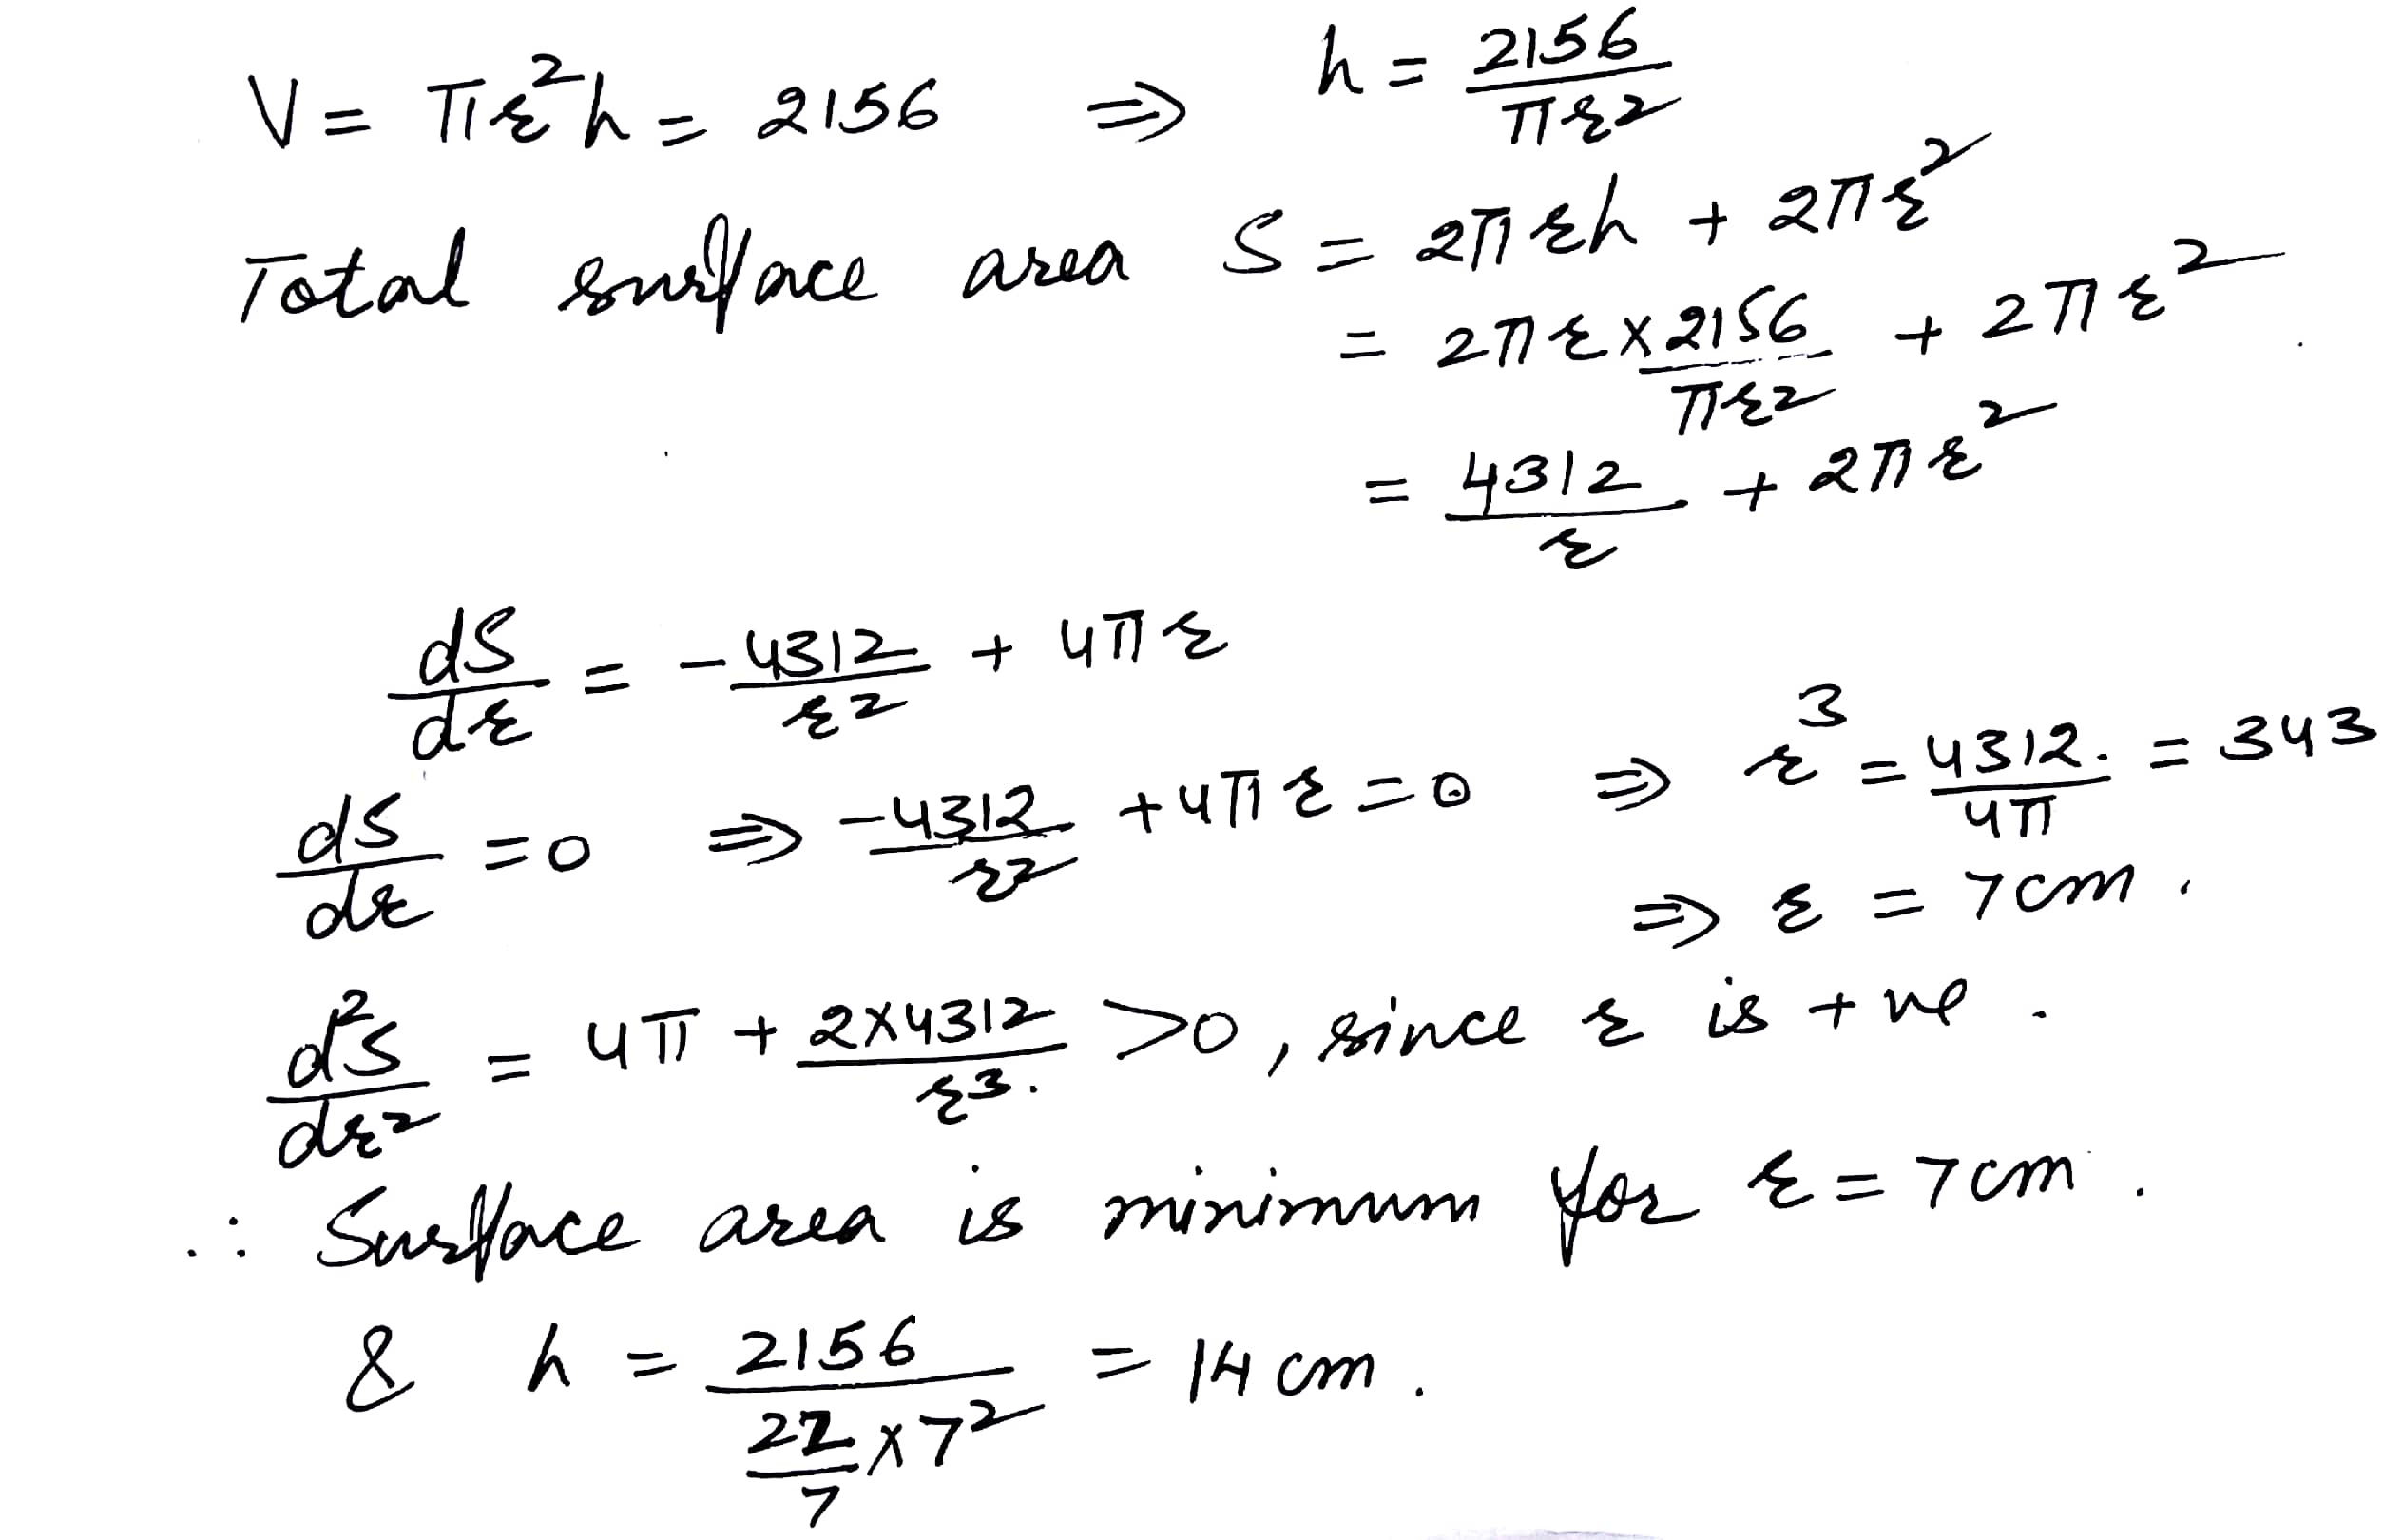 V = πr²h = 2156 ⇒ h = 2156/πr²
Total surface area S = 2πrh + 2πr²
= 2πr × 2156/πr² + 2πr²
= 4312/r + 2πr²
dS/dr = -4312/r² + 4πr
dS/dr = 0 ⇒ -4312/r² + 4πr = 0 ⇒ r³ = 4312/4π = 343
⇒ r = 7cm.
d²S/dr² = 4π + 2×4312/r³ >0, since r is +ve.
∴ Surface area is minimum for r = 7cm.
& h = 2156/(22/7 × 7²) = 14 cm.